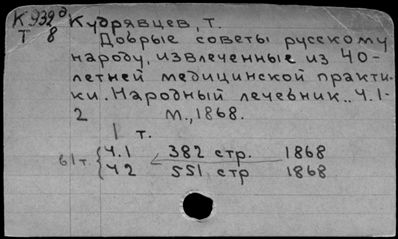 К 939 д Кудрявцев, Т.
Т 8
Добрые советы русскому
народу, извлеченные из 40-
летней медицинской практи-
ки. Народный лечебник.. Ч.1-
2 М., 1868.
1 т.
б/т. { Ч.1 382 стр. 1868
Ч2 551 стр 1868